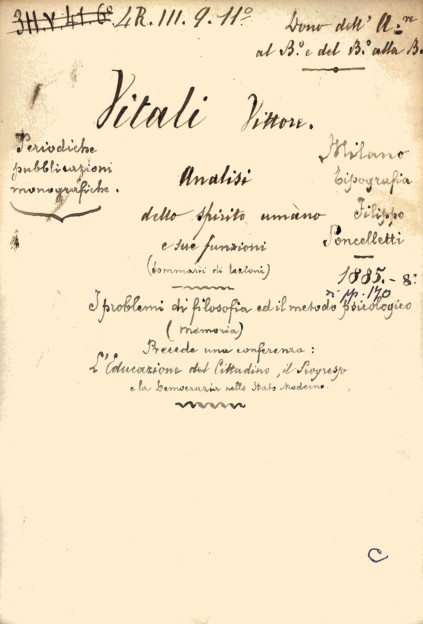 3H.V.41.6º 4R.III.9.11º
Dono dell' A.ⁿᵉ
al B.º e del B.º alla B.
Vitali Vittore.
Periodiche
pubblicazioni
monografiche.
Milano
Tipografia
Filippo
Poncelletti
1885. - 8º
di pp. 170
Analisi
dello spirito umano
e sue funzioni
(Sommarii di lezioni)
I problemi di filosofia ed il metodo psicologico
(Memoria)
Precede una conferenza:
L'Educazione del Cittadino, il Progresso
e la Democrazia nello Stato Moderno.
C